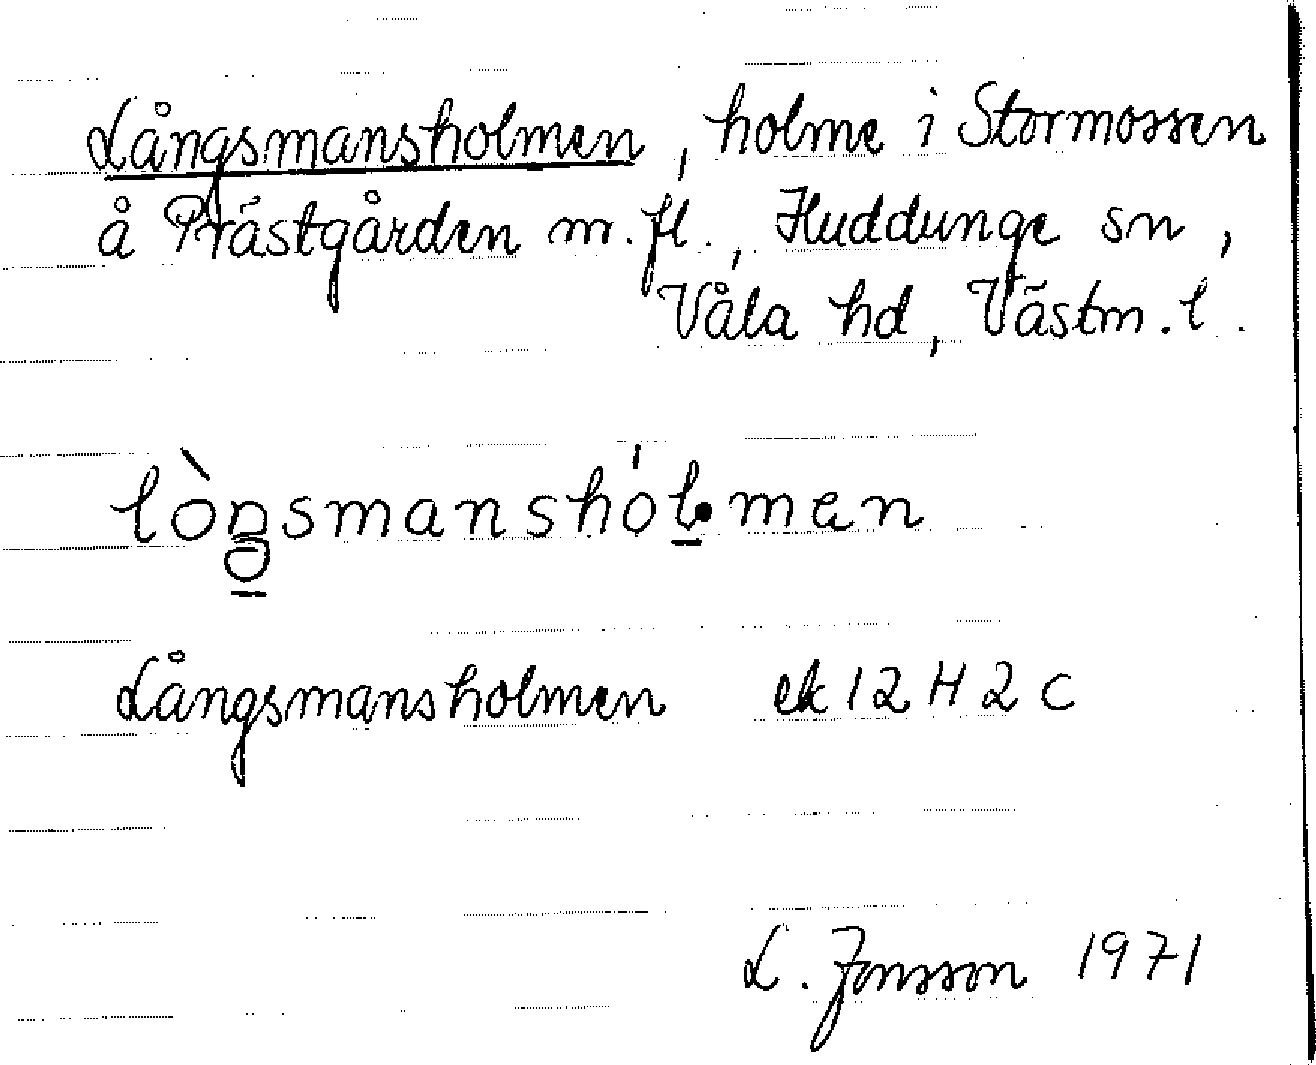 Långsmansholmen, holme i Stormossen
å Prästgården m.fl., Huddunge sn,
Våla hd, Västm.l.
lòŋsmanshól̠·men
Långsmansholmen ek 12 H 2 C
L. Jonsson 1971